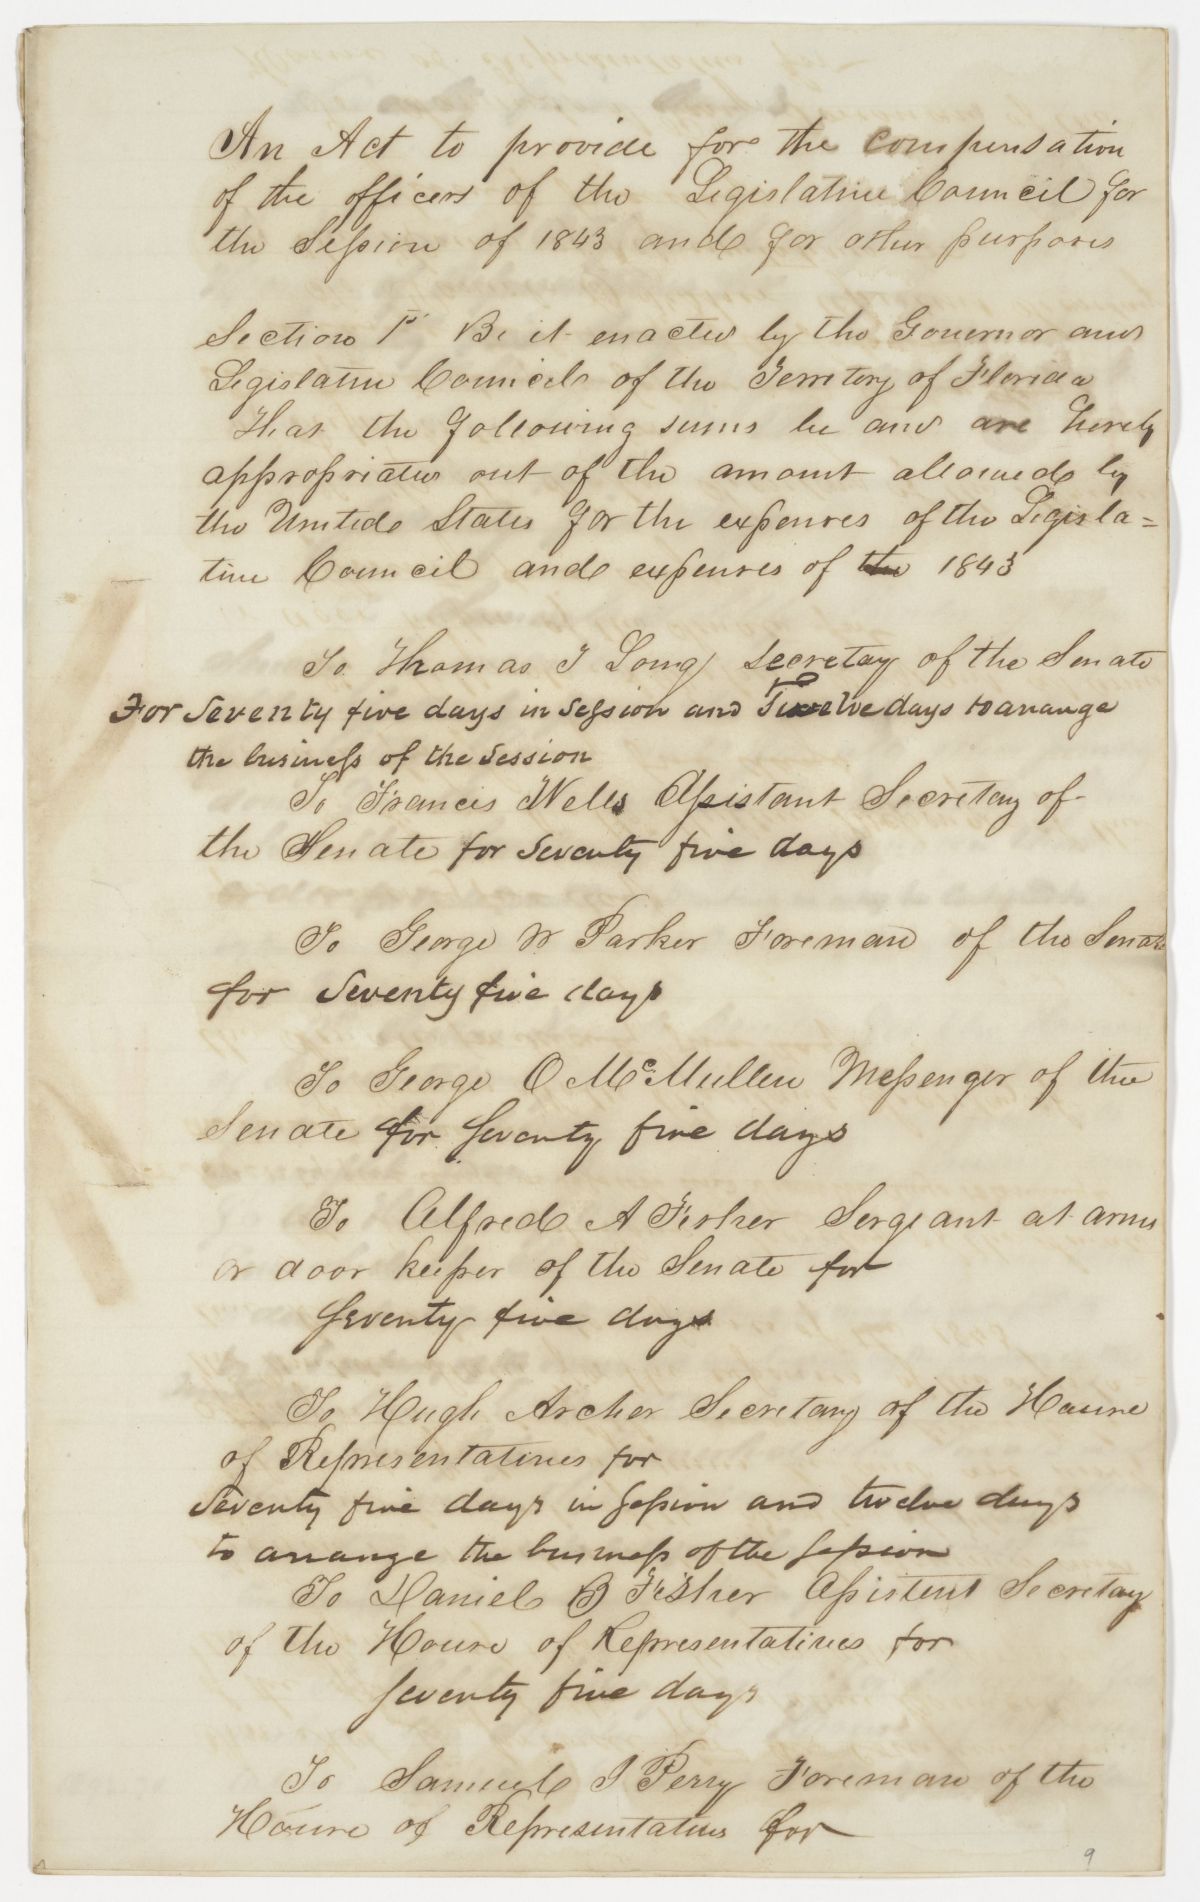 An Act to provide for the compensation
of the officers of the Legislative Council for
the Session of 1843 and for other purposes
Section 1st Be it enacted by the Governor and
Legislative Council of the Territory of Florida
That the following sums be and are hereby
appropriated out of the amount allowed by
the United States for the expenses of the Legisla=
tive Council and expenses of the 1843
To Thomas T Long secretay of the Senate
For Seventy five days in Session and Twelve days to arrange
the business of the Session
To Francis Wells Assistant Secretay of
the Senate for Seventy five days
To George W Parker Foreman of the Senate
for Seventy five days
To George O McMullen Messenger of the
Senate for Seventy five days
To Alfred A Fisher Sergeant at arms
or door keeper of the Senate for
Seventy five days
To Hugh Archer Secretary of the House
of Representatives for
Seventy five days in Session and twelve days
to arrange the business of the Session
To Daniel B Fisher Assistent Secretay
of the House of Representatives for
Seventy five days
To Samuel J Perry Foreman of the
House of Representatives for
9